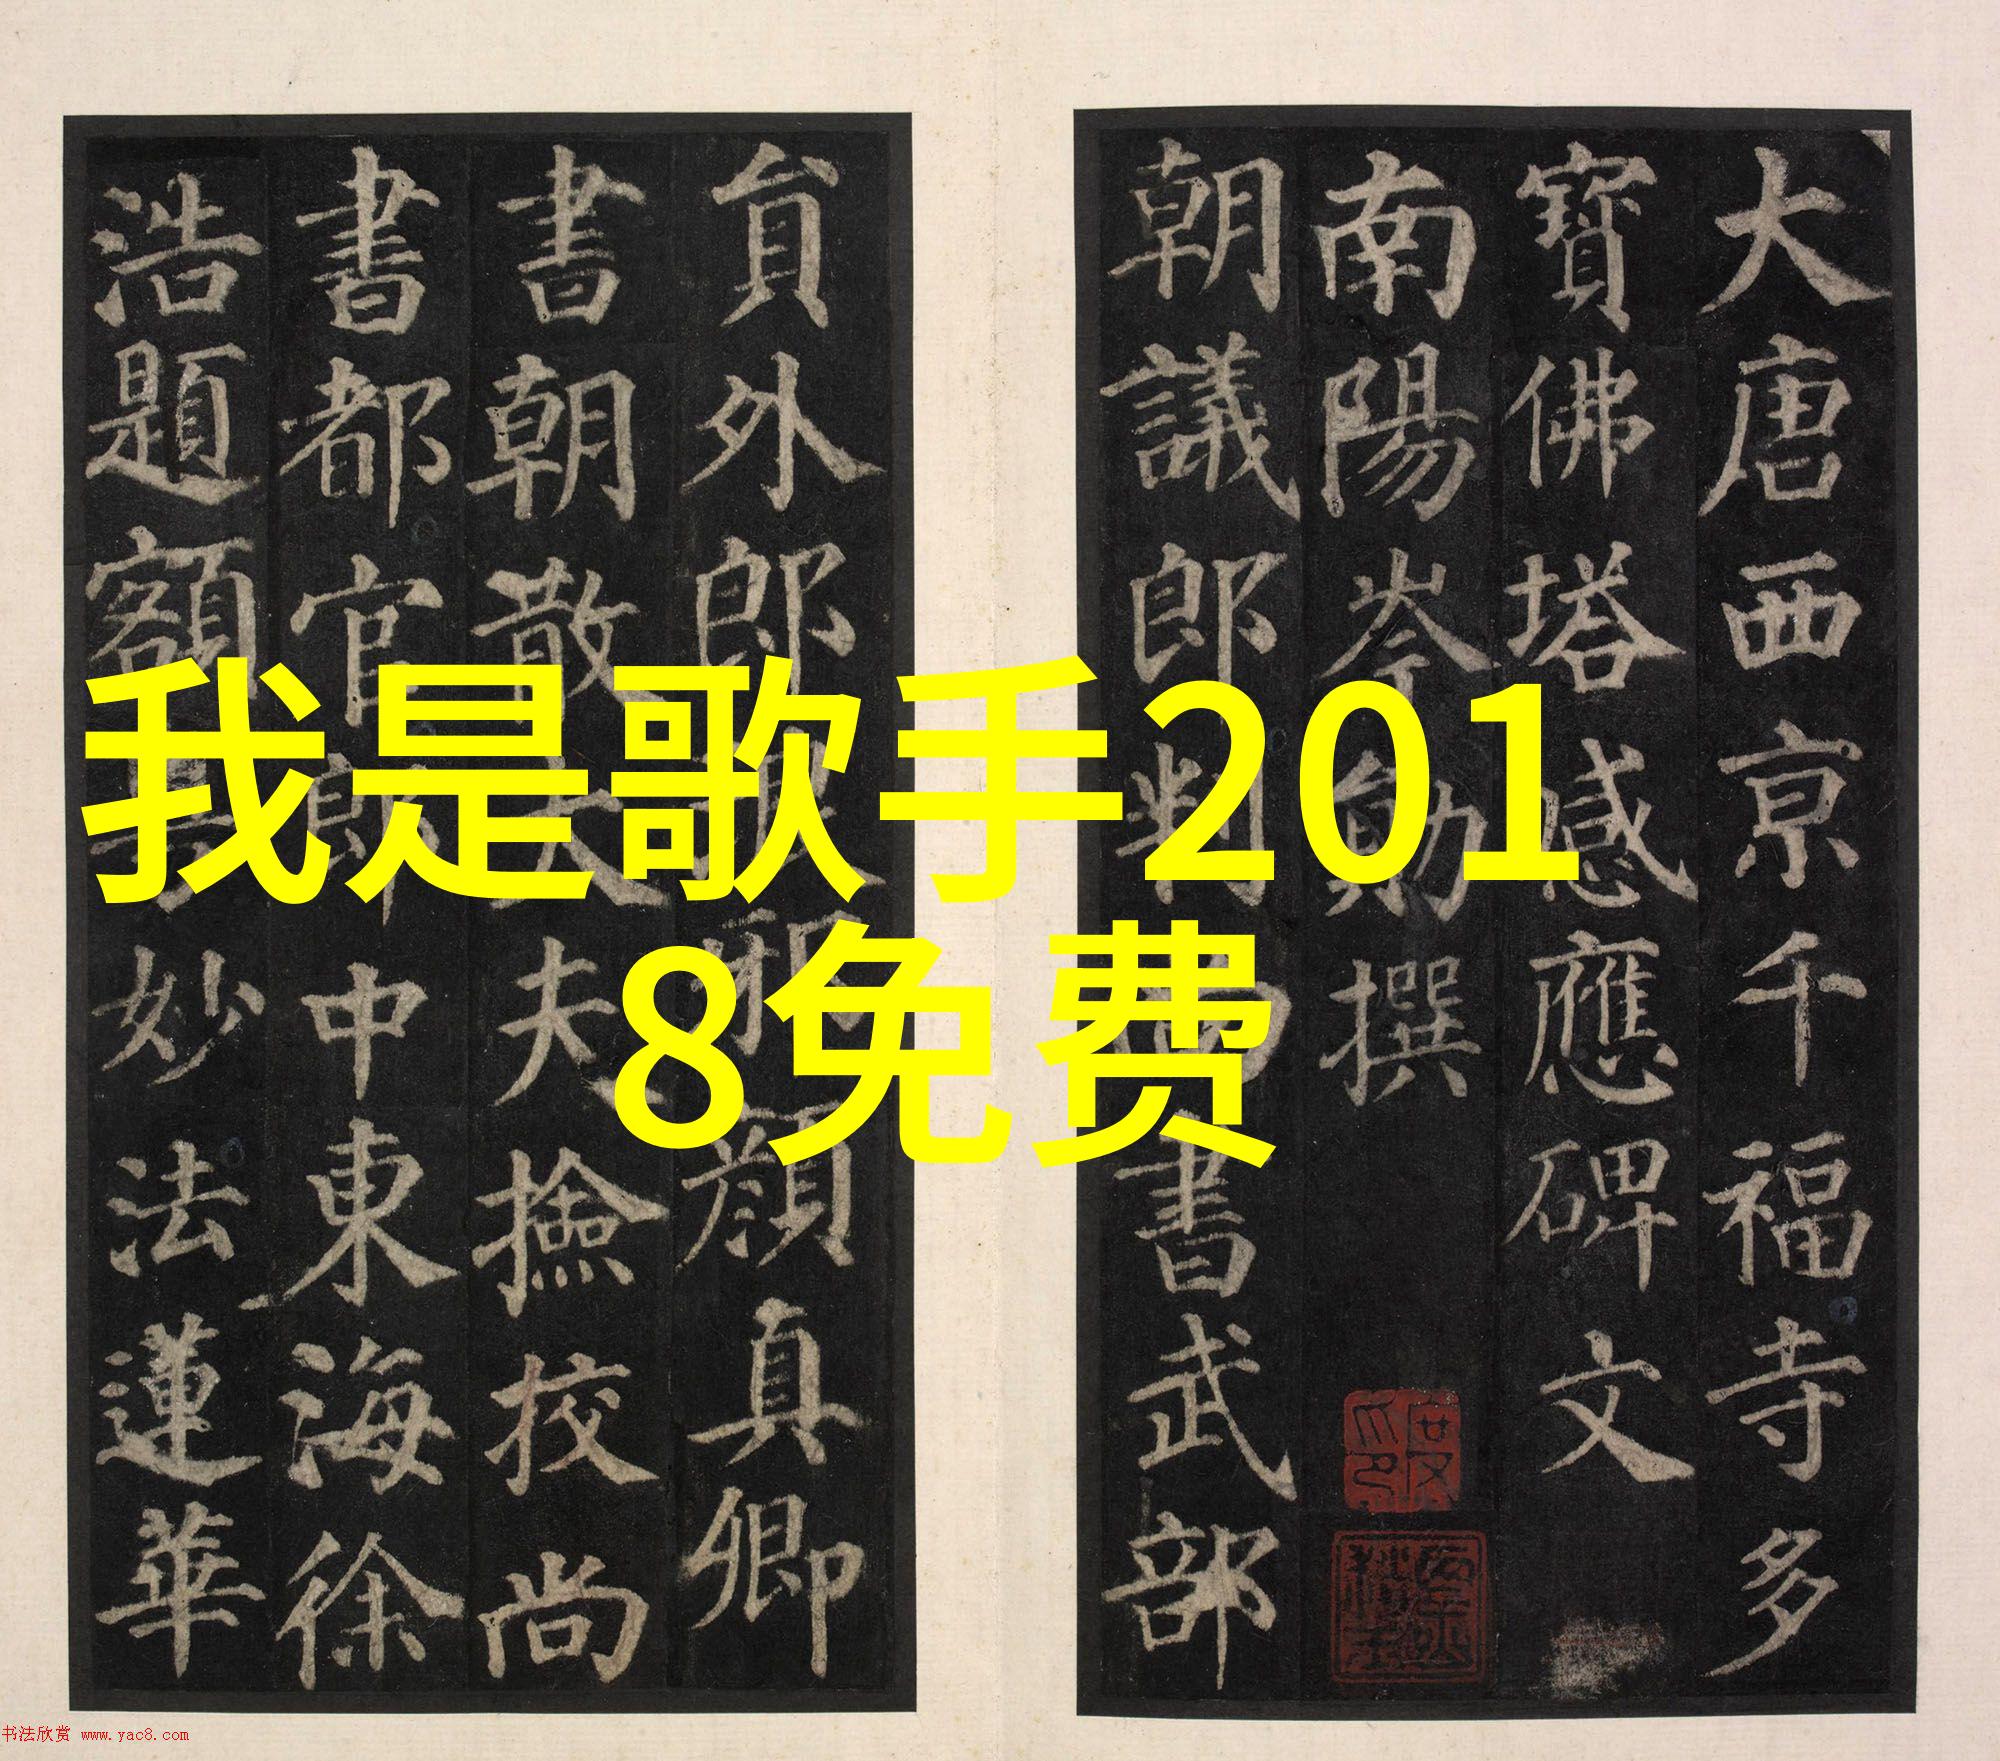 大唐西京千福寺多
寶佛塔感應碑文
南陽岑勛撰
朝議郎判書武部
貟外郎邪顏真卿
書朝散大夫撿挍尚
書都官郎中東海徐
浩題額妙法蓮華
我是歌手201
8免费
书法欣赏 www.yac8.com